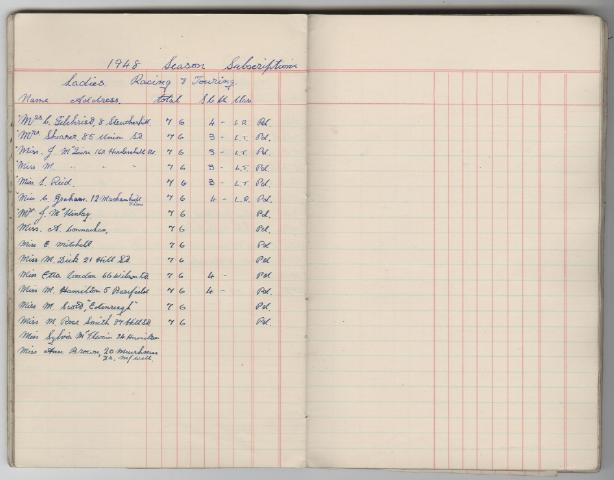 1948 Season Subscriptions
Ladies Racing & Touring
Name Address total
Mrs C. Gilchrist, 8 7 6 4 - L.R. Pd.
Mrs Shearer, 85 Union St. 7 6 3 - L.T. Pd.
Miss J. 7 6 3 - L.T. Pd.
Miss M " " " 7 6 3 - L.T. Pd.
Miss Reid. 7 6 3 - L.T. Pd.
Miss C. Graham, 12 7 6 4 - L.R. Pd.
J. McKinlay 7 6 Pd.
Miss. A. 7 6 Pd.
Miss E. Mitchell 7 6 Pd.
Miss M. Dick 21 Hill St 7 6 Pd.
Miss Etta London 66 Wilson St. 7 6 4 - Pd.
Miss M. Hamilton 5 7 6 4 - Pd.
Miss M. Scott 7 6 Pd.
Miss M. Rose Smith 37 Hill St. 7 6 Pd.
Miss Sylvia 24
Miss Ann Brown, 20 Muirhouse